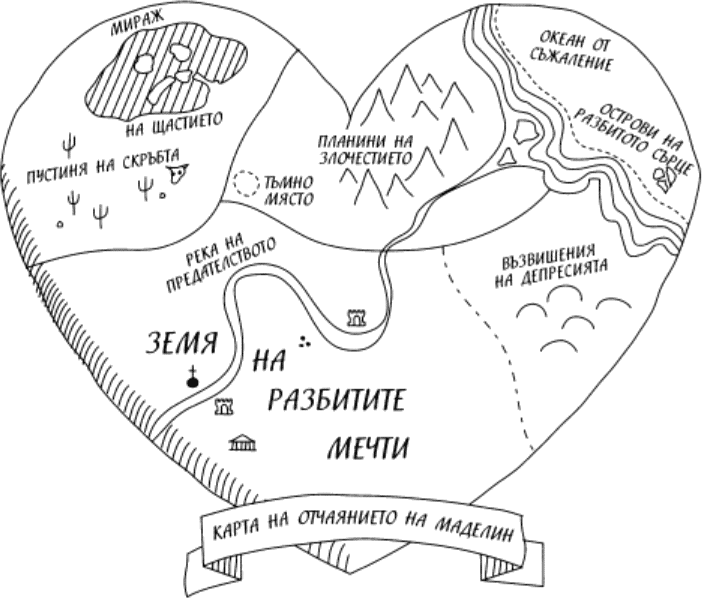 МИРАЖ
НА ЩАСТИЕТО
ПУСТИНЯ НА СКРЪБТА
ТЪМНО
МЯСТО
ПЛАНИНИ НА
ЗЛОЧЕСТИЕТО
ОКЕАН ОТ
СЪЖАЛЕНИЕ
ОСТРОВИ НА
РАЗБИТОТО СЪРЦЕ
РЕКА НА
ПРЕДАТЕЛСТВОТО
ВЪЗВИШЕНИЯ
НА ДЕПРЕСИЯТА
ЗЕМЯ
НА
РАЗБИТИТЕ
МЕЧТИ
КАРТА НА ОТЧАЯНИЕТО НА МАДЕЛИН